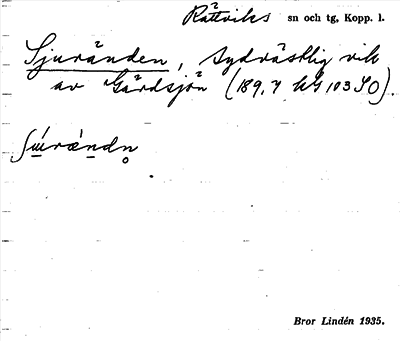 Rättviks sn och tg, Kopp. l.
Sjuränden, sydvästlig vik
av Gärdsjön (189,7 hG 103 SO).
Bror Lindén 1935.